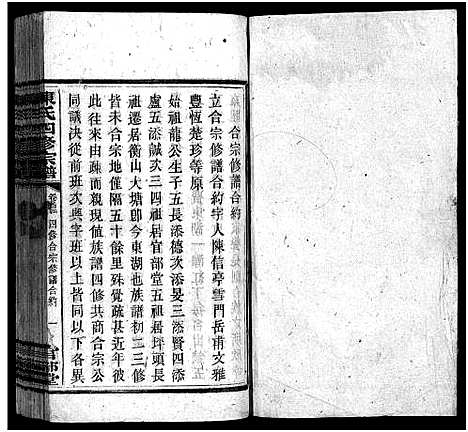 合宗修譜合約
立合宗修譜合約宇人陳信亭雲門岳甫文雅
豐恆楚珍等原
始祖龍公生子五長添德次添旻三添賢四添
盧五添誠次三四祖居官部堂五祖居坪頭長
祖遷居衡山大塘卽今東湖也族譜初二三修
皆未合宗地僅隔五十餘里殊覺疏甚近年彼
此往來由疎而親現值族譜四修共商合宗公
同議決從前班次輿字班以上皆同以下各異
陳氏四修宗譜
四修合宗修譜合約
一
官部堂